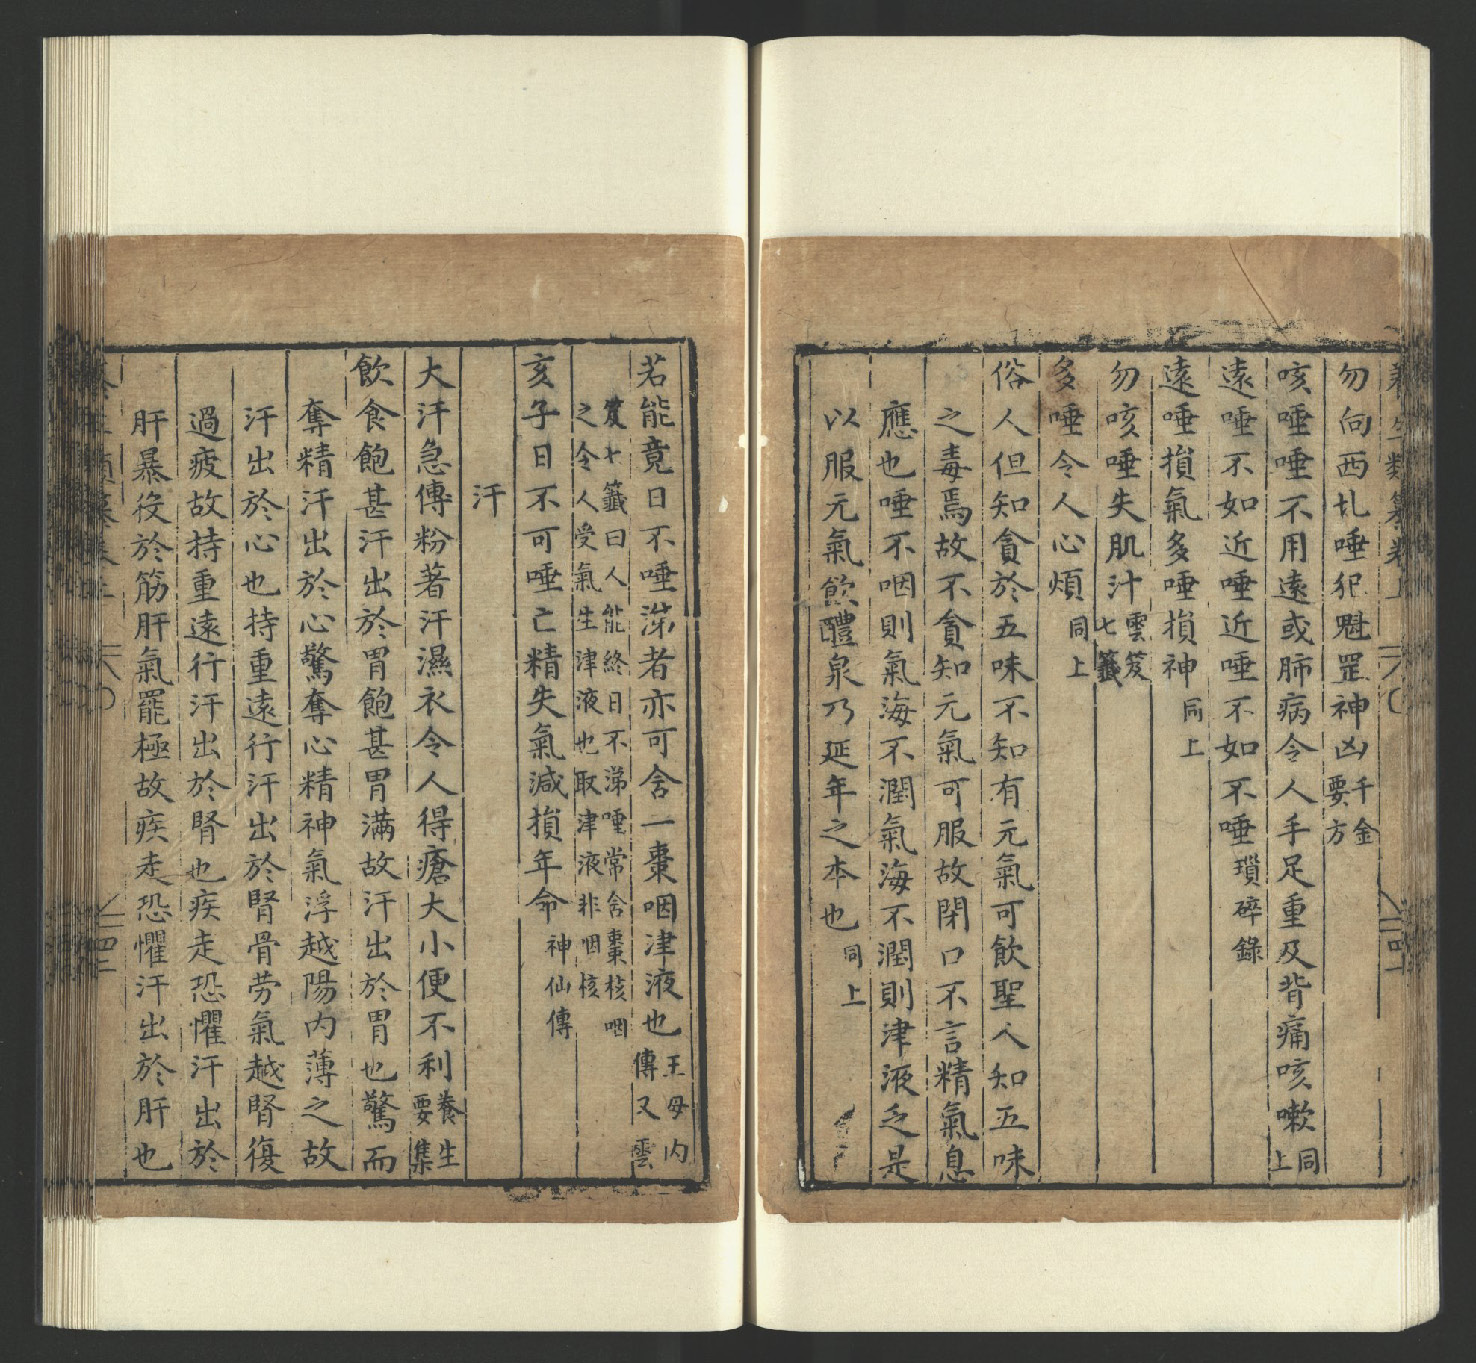 勿向西北唾犯魁罡神凶千金要方
咳唾唾不用遠或肺病令人手足重及背痛咳嗽同上
遠唾不如近唾近唾不如不唾瑣碎錄
遠唾損氣多唾損神同上
勿咳唾失肌汁雲笈七籤
多唾令人心煩同上
俗人但知貪於五味不知有元氣可飲聖人知五味
之毒焉故不貪知元氣可服故閉口不言精氣息
應也唾不咽則氣海不潤氣海不潤則津液乏是
以服元氣飲醴泉乃延年之本也同上
若能竟日不唾涕者亦可含一棗咽津液也王母內傳又雲
笈七籤曰人能終日不涕唾常含棗核咽
之令人受氣生津液也取津液非咽核
亥子日不可唾亡精失氣減損年命神仙傳
汗
大汗急傅粉著汗濕衣令人得瘡大小便不利養生要集
飲食飽甚汗出於胃飽甚胃滿故汗出於胃也驚而
奪精汗出於心驚奪心精神氣浮越陽內薄之故
汗出於心也持重遠行汗出於腎骨劳氣越腎復
過疲故持重遠行汗出於腎也疾走恐懼汗出於
肝暴役於筋肝氣罷極故疾走恐懼汗出於肝也